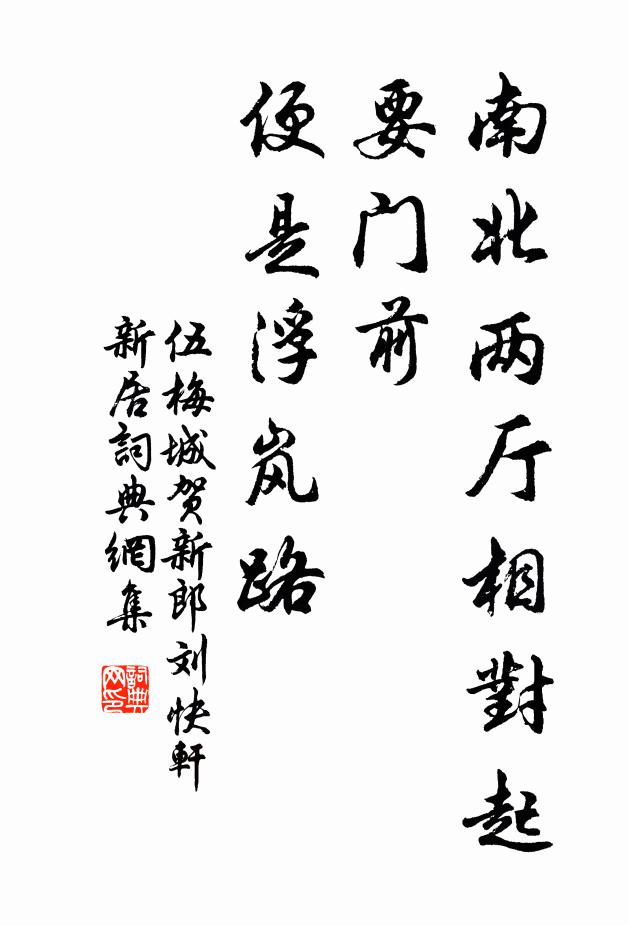 南北两厅相對起
要门前
便是浮岚路
伍梅城贺新郎刘快軒
新居詞典網集
詞典网印